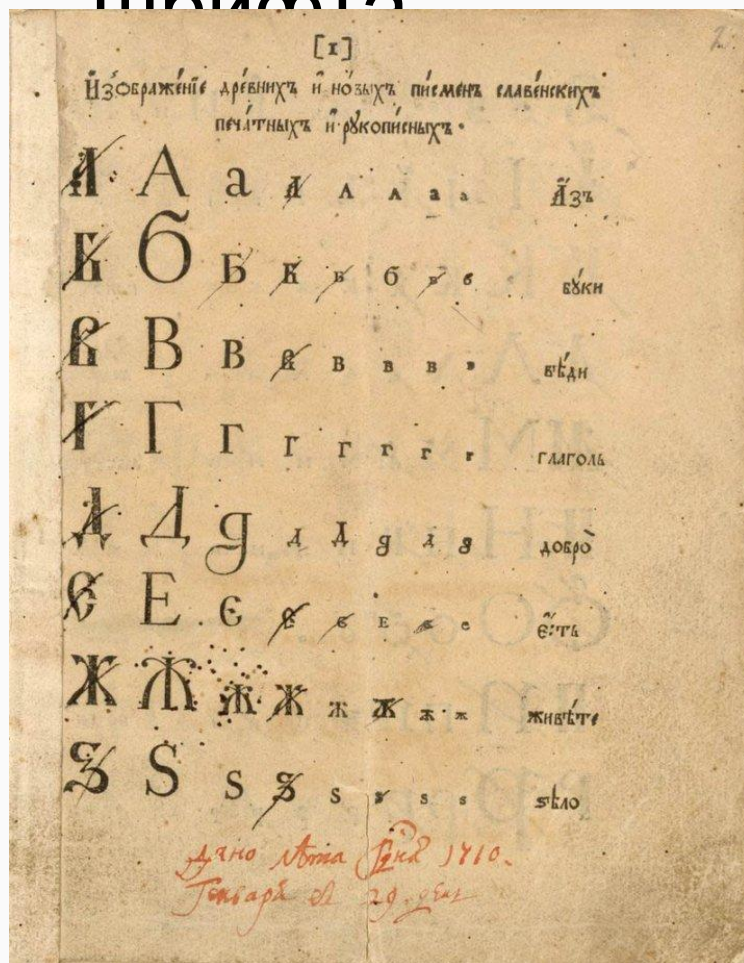 [1]
И҆зѡбраже́нїе дре́внихъ и҆ но́выхъ пи́сменъ славе́нскихъ
печа́тныхъ и҆ рꙋкопи́сныхъ.
А А а А А А а а А҆́зъ
Б Б Б Б Б б Б б бꙋ́ки
В В В В В В В В вѣ́ди
Г Г Г Г Г Г Г Г глаголь
Д Д д Д Д д Д д добро̀
Є Е Є Є Є Е Є Є є҆́сть
Ж Ж Ж Ж Ж Ж Ж Ж живѣ́те
Ѕ Ѕ Ѕ Ѕ Ѕ Ѕ Ѕ Ѕ ѕѣло
Дано лѣта Гдня 1710.
Генваря въ 29. день